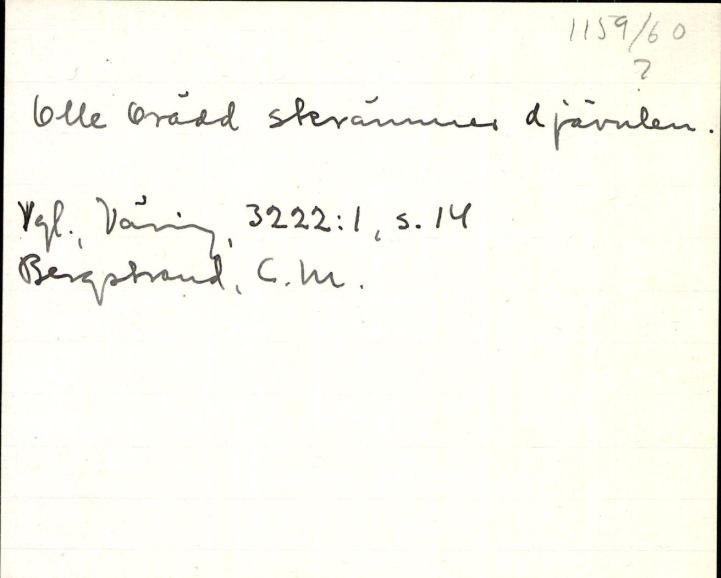 1159/60
?
Olle Orädd skrämmer djävulen.
Vgl., Våning, 3222:1, s. 14
Bergstrand, C.M.